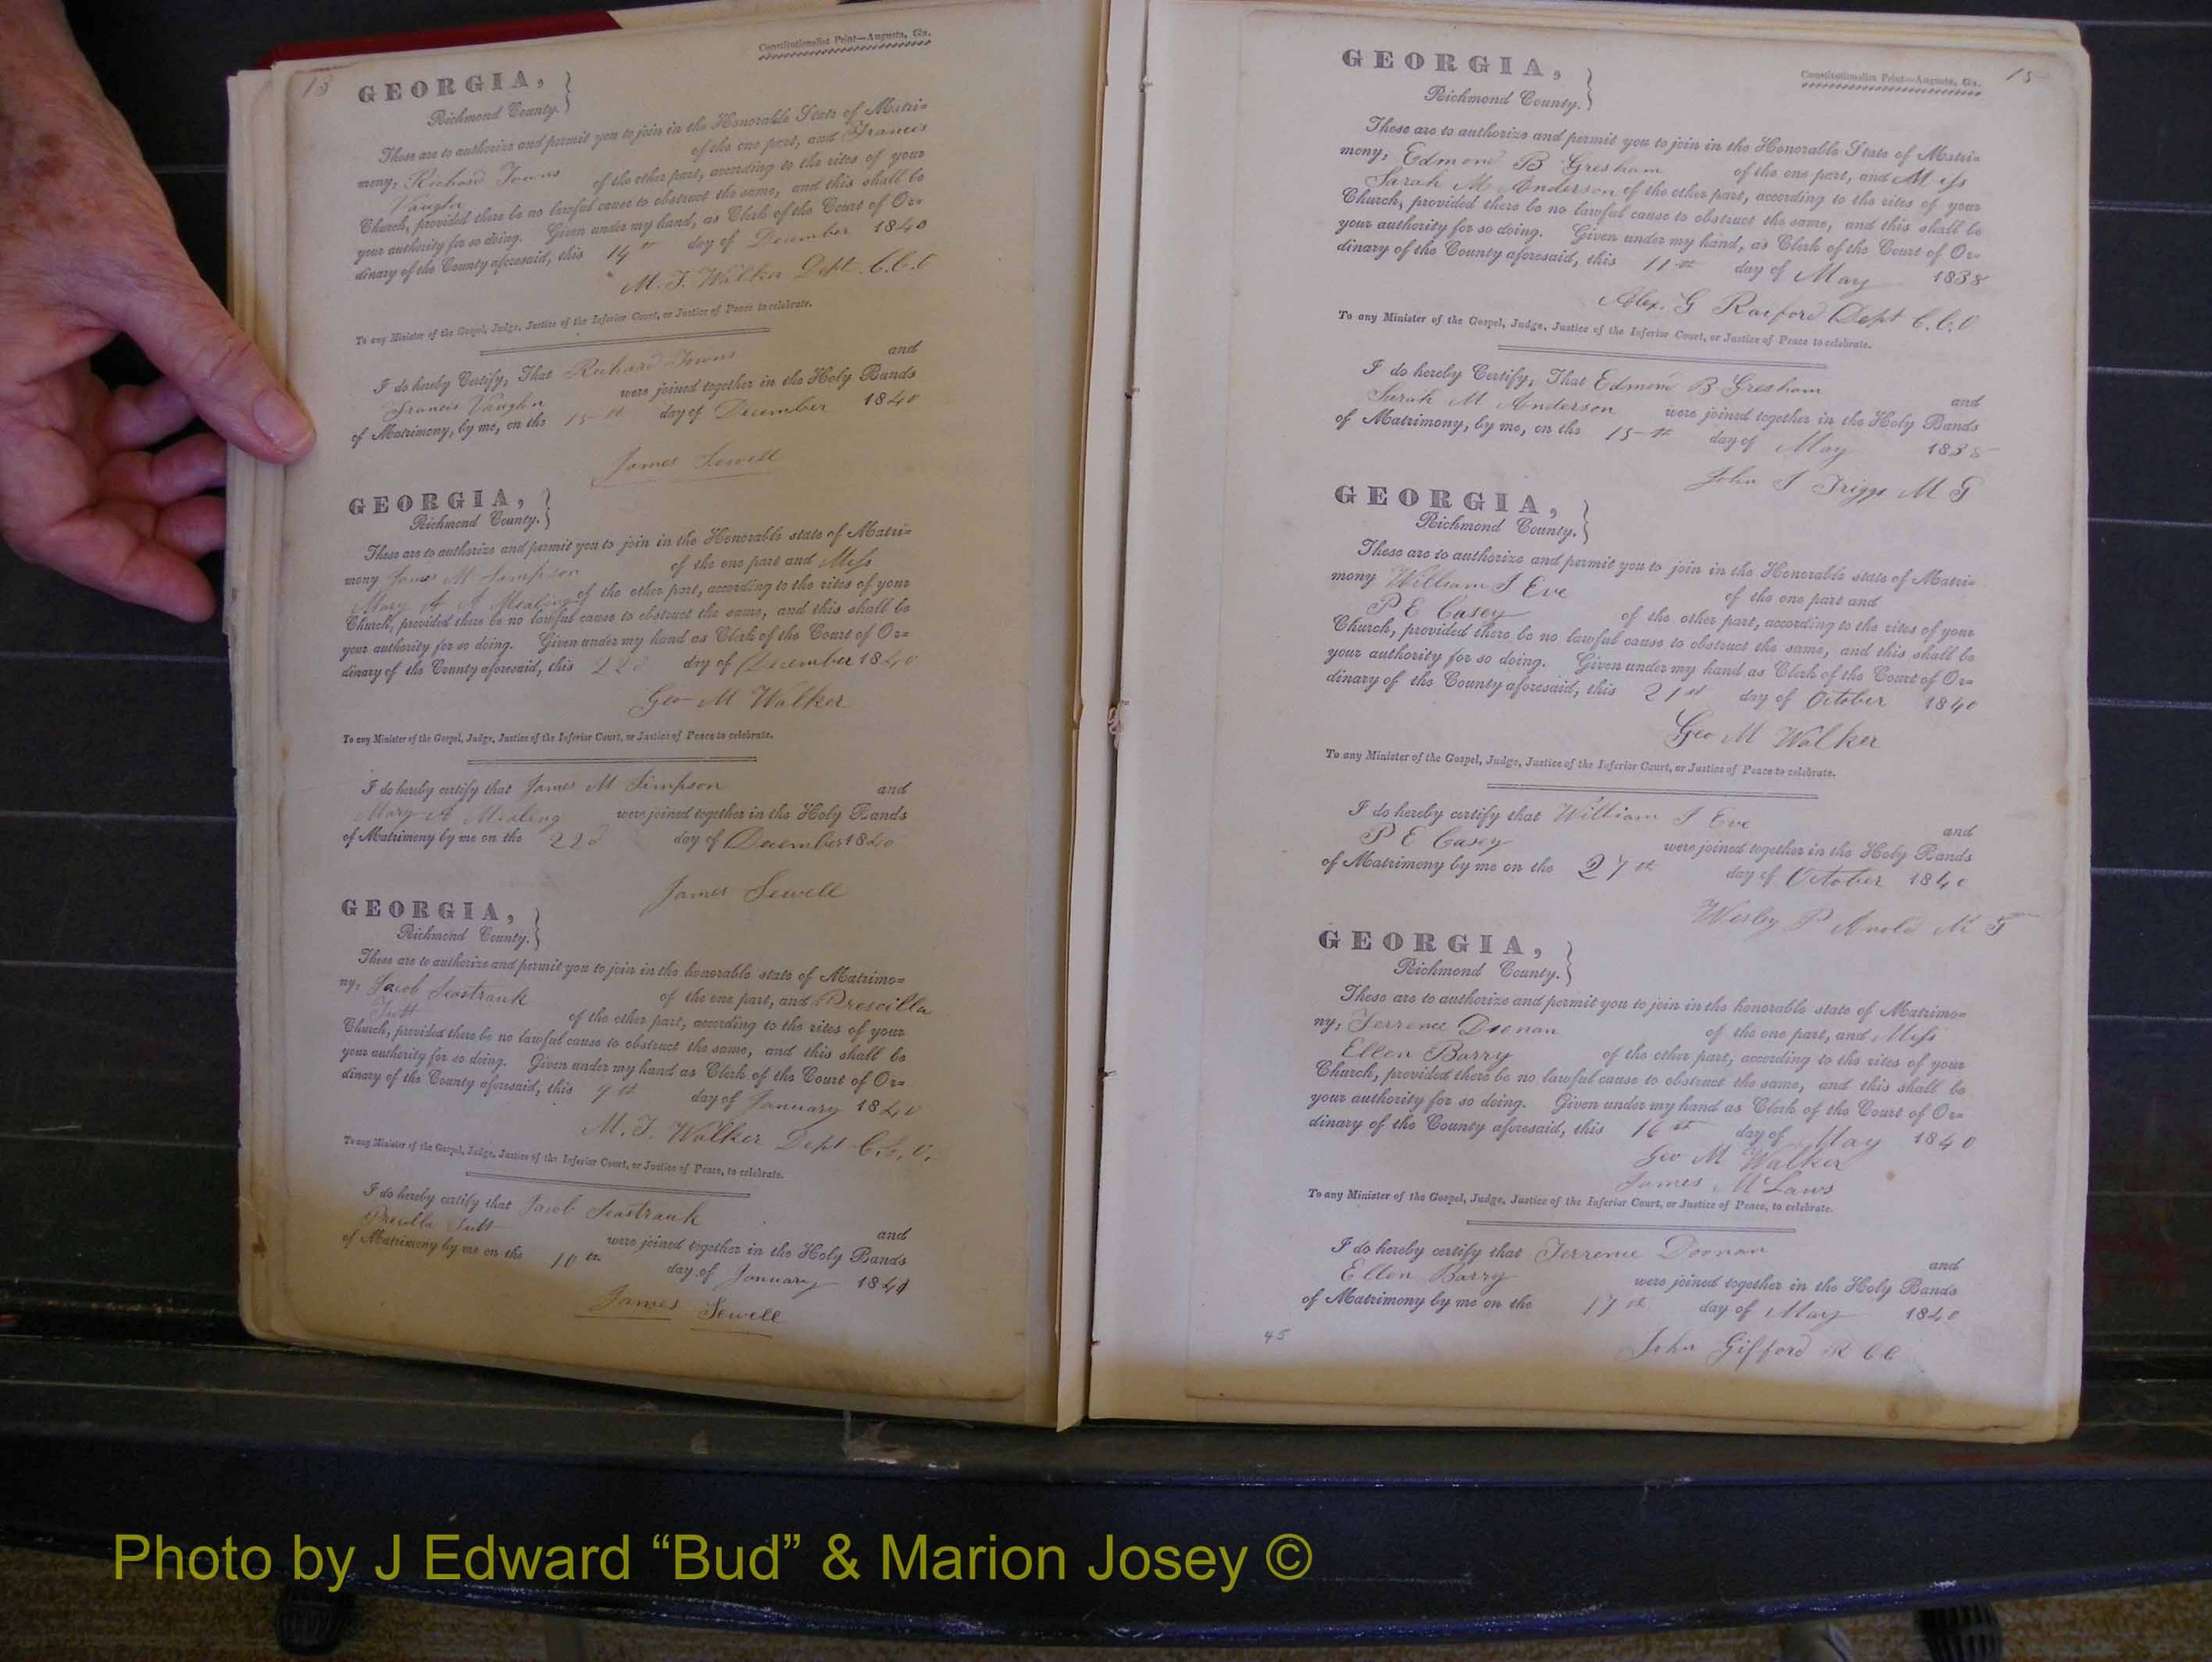 13
Constitutionalist Print—Augusta, Ga.
GEORGIA,
Richmond County.
These are to authorize and permit you to join in the Honorable State of Matri=
mony, Richard Towns of the one part, and Francis
Vaughn of the other part, according to the rites of your
Church, provided there be no lawful cause to obstruct the same, and this shall be
your authority for so doing. Given under my hand, as Clerk of the Court of Or=
dinary of the County aforesaid, this 14th day of December 1840
M. T. Walker Dept. C.C.O
To any Minister of the Gospel, Judge, Justice of the Inferior Court, or Justice of Peace to celebrate.
I do hereby Certify, That Richard Towns and
Francis Vaughn were joined together in the Holy Bands
of Matrimony, by me, on the 15th day of December 1840
James Sewell
GEORGIA,
Richmond County.
These are to authorize and permit you to join in the Honorable state of Matri=
mony James M Simpson of the one part and Miss
Mary A A Mealing of the other part, according to the rites of your
Church, provided there be no lawful cause to obstruct the same, and this shall be
your authority for so doing. Given under my hand as Clerk of the Court of Or=
dinary of the County aforesaid, this 22d day of December 1840
Geo M Walker
To any Minister of the Gospel, Judge, Justice of the Inferior Court, or Justice of Peace to celebrate.
I do hereby certify that James M Simpson and
Mary A Mealing were joined together in the Holy Bands
of Matrimony by me on the 22d day of December 1840
James Sewell
GEORGIA,
Richmond County.
These are to authorize and permit you to join in the honorable state of Matrimo=
ny, Jacob Seastrunk of the one part, and Prescilla
Tutt of the other part, according to the rites of your
Church, provided there be no lawful cause to obstruct the same, and this shall be
your authority for so doing. Given under my hand as Clerk of the Court of Or=
dinary of the County aforesaid, this 9th day of January 1840
M. T. Walker Dept C.C.O.
To any Minister of the Gospel, Judge, Justice of the Inferior Court, or Justice of Peace, to celebrate.
I do hereby certify that Jacob Seastrunk and
Tutt were joined together in the Holy Bands
of Matrimony by me on the 10th day of January
James Sewell
15
Constitutionalist Print—Augusta, Ga.
GEORGIA,
Richmond County.
These are to authorize and permit you to join in the Honorable State of Matri=
mony, Edmond B Gresham of the one part, and Miss
Sarah M Anderson of the other part, according to the rites of your
Church, provided there be no lawful cause to obstruct the same, and this shall be
your authority for so doing. Given under my hand, as Clerk of the Court of Or=
dinary of the County aforesaid, this 11th day of May 1838
Alex. G Raiford Dept C.C.O
To any Minister of the Gospel, Judge, Justice of the Inferior Court, or Justice of Peace to celebrate.
I do hereby Certify, That Edmond B Gresham and
Sarah M Anderson were joined together in the Holy Bands
of Matrimony, by me, on the 15th day of May 1838
John S Triggs M G
GEORGIA,
Richmond County.
These are to authorize and permit you to join in the Honorable state of Matri=
mony William J Eve of the one part and
P E Casey of the other part, according to the rites of your
Church, provided there be no lawful cause to obstruct the same, and this shall be
your authority for so doing. Given under my hand as Clerk of the Court of Or=
dinary of the County aforesaid, this 21st day of October 1840
Geo M Walker
To any Minister of the Gospel, Judge, Justice of the Inferior Court, or Justice of Peace to celebrate.
I do hereby certify that William J Eve and
P E Casey were joined together in the Holy Bands
of Matrimony by me on the 27th day of October 1840
Wesley P Arnold M G
GEORGIA,
Richmond County.
These are to authorize and permit you to join in the honorable state of Matrimo=
ny, Terrence Doonan of the one part, and Miss
Ellen Barry of the other part, according to the rites of your
Church, provided there be no lawful cause to obstruct the same, and this shall be
your authority for so doing. Given under my hand as Clerk of the Court of Or=
dinary of the County aforesaid, this 16th day of May 1840
Geo M Walker
James McLaws
To any Minister of the Gospel, Judge, Justice of the Inferior Court, or Justice of Peace, to celebrate.
I do hereby certify that Terrence Doonan and
Ellen Barry were joined together in the Holy Bands
of Matrimony by me on the 17th day of May 1840
John Gifford R C C
45
Photo by J Edward “Bud” & Marion Josey ©